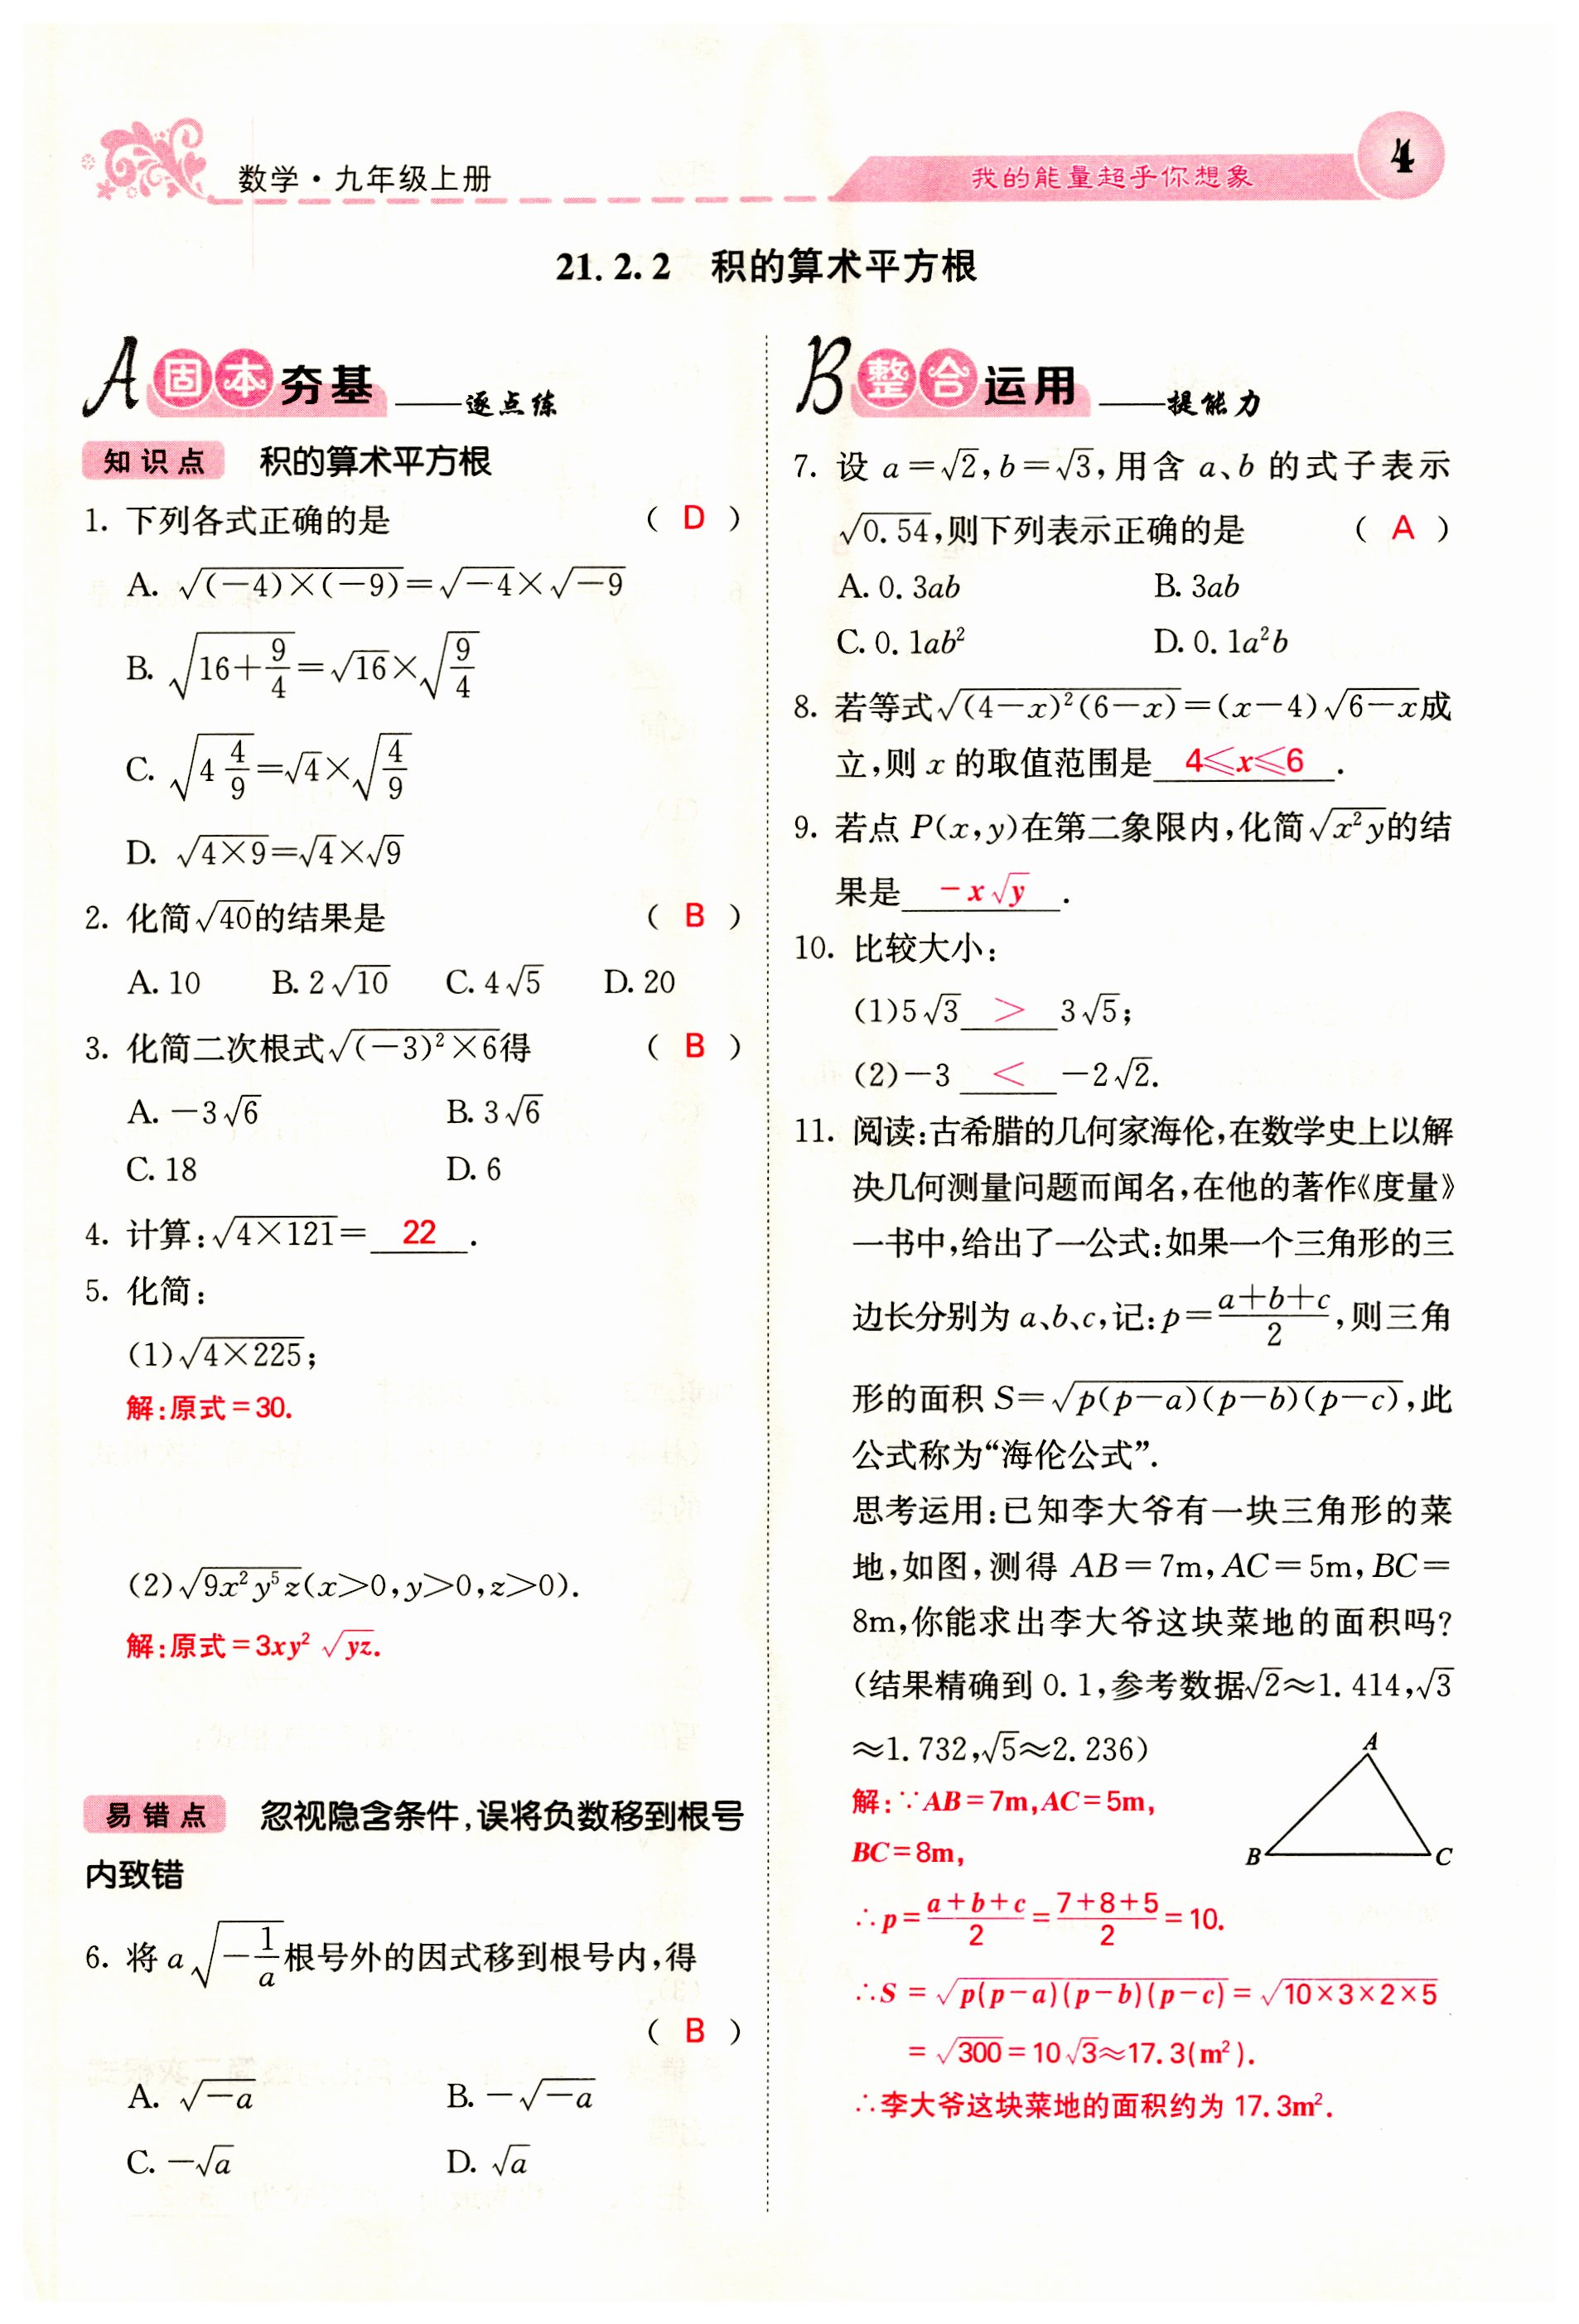 数学·九年级上册
我的能量超乎你想象
4
21.2.2 积的算术平方根
A 固本夯基——逐点练
知识点 积的算术平方根
1. 下列各式正确的是 ( D )
A. √((-4)×(-9))=√-4×√-9
B. √(16+9/4)=√16×√(9/4)
C. √(4 4/9)=√4×√(4/9)
D. √(4×9)=√4×√9
2. 化简√40的结果是 ( B )
A. 10 B. 2√10 C. 4√5 D. 20
3. 化简二次根式√((-3)²×6)得 ( B )
A. -3√6 B. 3√6
C. 18 D. 6
4. 计算:√(4×121)= 22 .
5. 化简:
(1)√(4×225);
解:原式=30.
(2)√(9x²y⁵z)(x>0,y>0,z>0).
解:原式=3xy²√(yz).
易错点 忽视隐含条件,误将负数移到根号
内致错
6. 将a√(-1/a)根号外的因式移到根号内,得
( B )
A. √(-a) B. -√(-a)
C. -√a D. √a
B 整合运用——提能力
7. 设 a=√2,b=√3,用含 a、b 的式子表示
√0.54,则下列表示正确的是 ( A )
A. 0.3ab B. 3ab
C. 0.1ab² D. 0.1a²b
8. 若等式√((4-x)²(6-x))=(x-4)√(6-x)成
立,则 x 的取值范围是 4≤x≤6 .
9. 若点 P(x,y)在第二象限内,化简√(x²y)的结
果是 -x√y .
10. 比较大小:
(1)5√3 > 3√5;
(2)-3 < -2√2.
11. 阅读:古希腊的几何家海伦,在数学史上以解
决几何测量问题而闻名,在他的著作《度量》
一书中,给出了一公式:如果一个三角形的三
边长分别为 a、b、c,记:p=(a+b+c)/2,则三角
形的面积 S=√(p(p-a)(p-b)(p-c)),此
公式称为“海伦公式”.
思考运用:已知李大爷有一块三角形的菜
地,如图,测得 AB=7m,AC=5m,BC=
8m,你能求出李大爷这块菜地的面积吗?
(结果精确到 0.1,参考数据√2≈1.414,√3
≈1.732,√5≈2.236)
A
B
C
解:∵AB=7m,AC=5m,
BC=8m,
∴p=(a+b+c)/2=(7+8+5)/2=10.
∴S=√(p(p-a)(p-b)(p-c))=√(10×3×2×5)
=√300=10√3≈17.3(m²).
∴李大爷这块菜地的面积约为 17.3m².